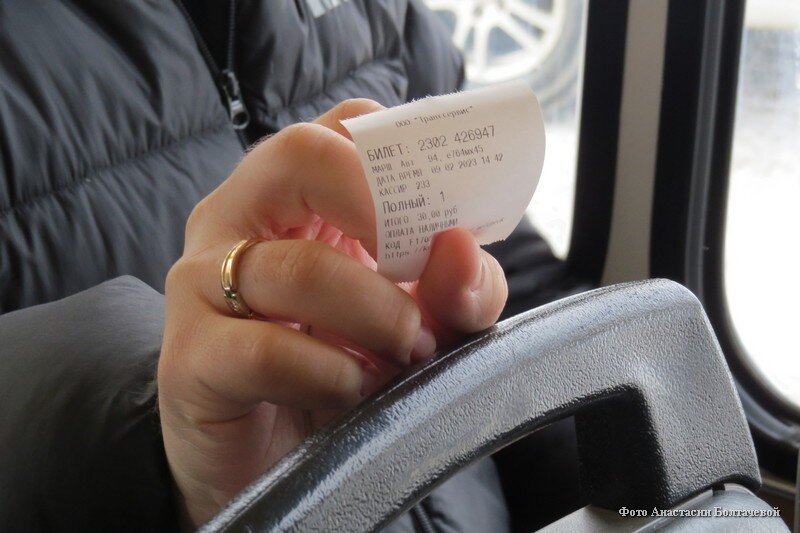 ООО "Транссервис"
БИЛЕТ: 2302 426947
МАРШ Авт 94, е764мх45
ДАТА,ВРЕМЯ 09 02 2023 14 42
КАССИР 233
Полный: 1
ИТОГО 30,00 руб
ОПЛАТА НАЛИЧНЫМИ
КОД
Фото Анастасии Болтачевой